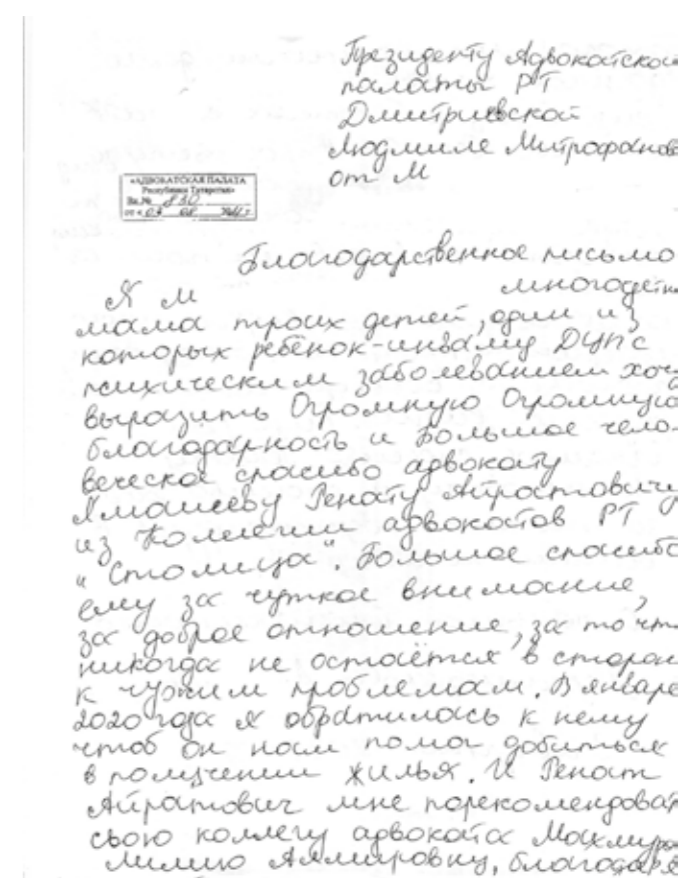 Президенту Адвокатской
палаты РТ
Дмитриевской
Людмиле Митрофанов
от М
«АДВОКАТСКАЯ ПАЛАТА
Республики Татарстан»
Вх.№ 830
от «03 08
Благодарственное письмо
Я М многодетн
мама троих детей, один из
которых ребёнок-инвалид ДЦП с
психическим заболеванием хочу
выразить Огромную Огромную
благодарность и Большое чело-
веческое спасибо адвокату
Ямашеву Ренату Айратовичу
из Коллегии адвокатов РТ
"Столица". Большое спасибо
ему за чуткое внимание,
за доброе отношение, за то что
никогда не остаётся в сторон
к чужим проблемам. В январе
2020 года я обратилась к нему
чтоб он нам помог добиться
в получении жилья. И Ренат
Айратович мне порекомендовал
свою коллегу адвоката
Лилию благодаря